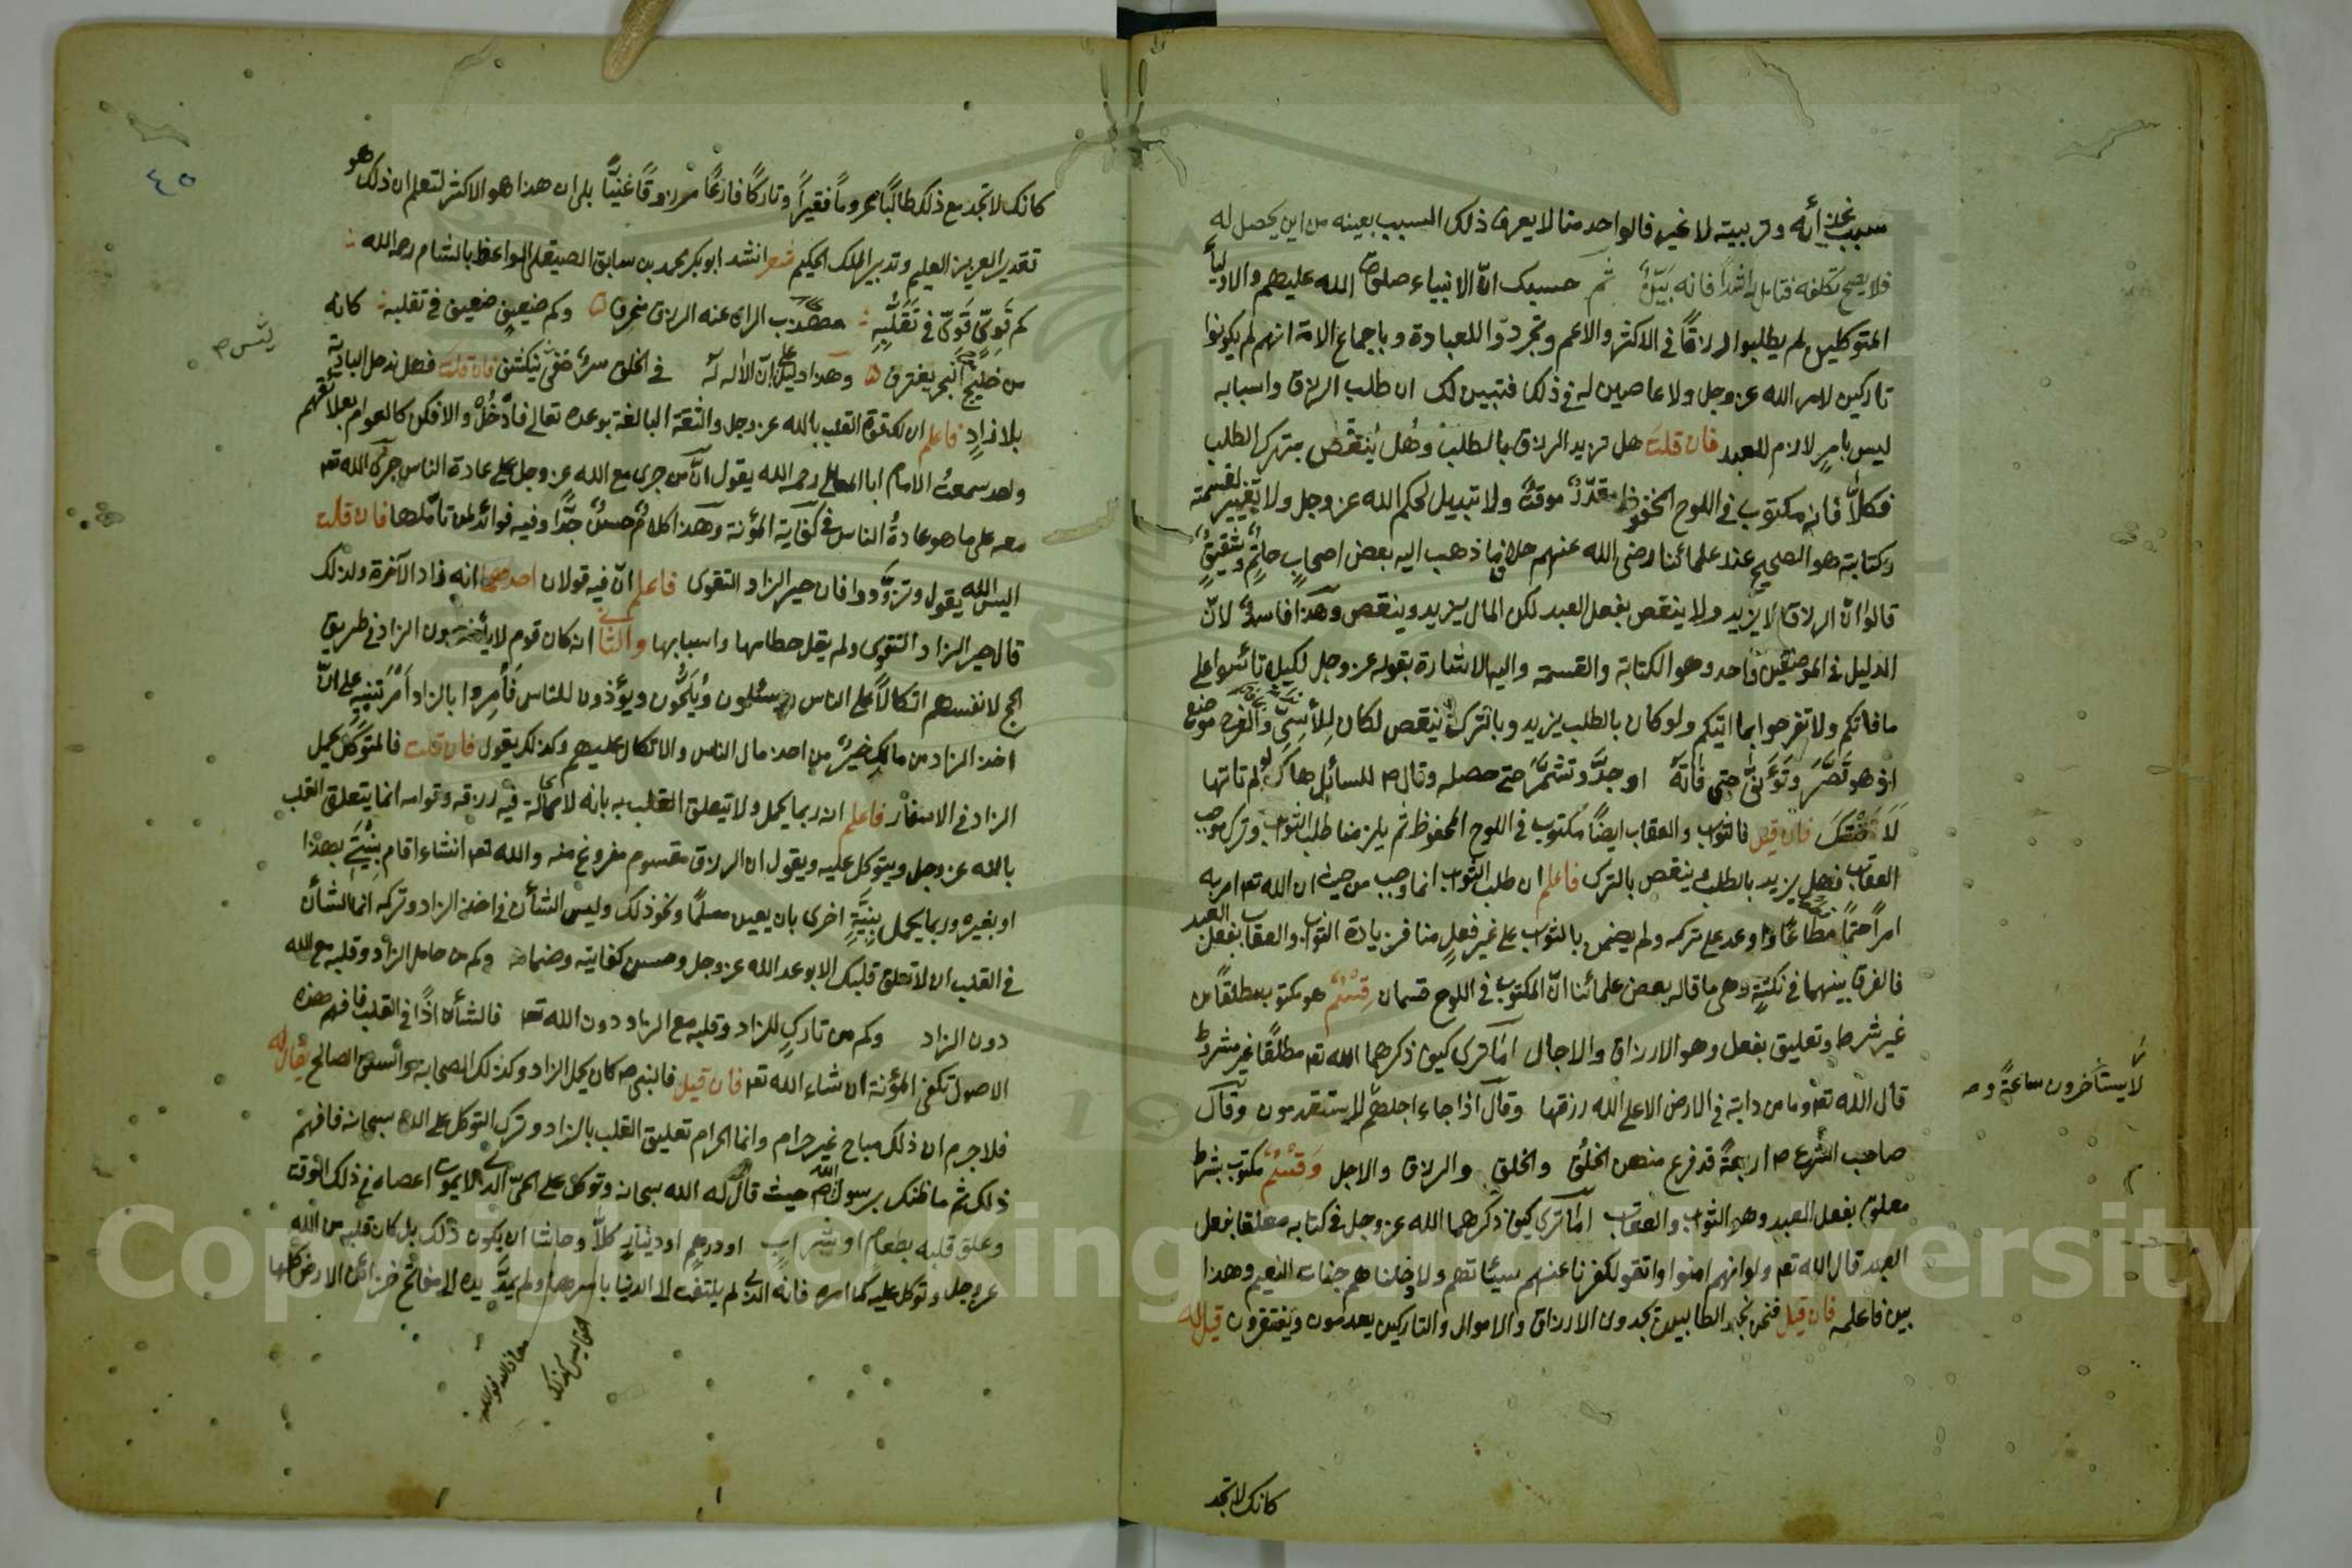 سبب غذائه وتربيته لا غير فالواحد منا لا يعرف ذلك السبب بعينه من اين يحصل له
فلا يصح تكلفه فتامل راشدا فانه بَيِّنٌ ثم حسبك انّ الانبياء صلوات الله عليهم والاولياء
المتوكلين لم يطلبوا الرزق في الاكثر والاعم وتجردوا للعبادة وباجماع الامة انهم لم يكونوا
تاركين لامر الله عز وجل ولا عاصين له في ذلك فتبين لك ان طلب الرزق واسبابه
ليس بامرٍ لازم للعبد فان قلت هل تزيد الرزق بالطلب وهل ينقص بترك الطلب
فكلاّ فانه مكتوب في اللوح المحفوظ مقدّر موقت ولا تبديل لحكم الله عز وجل ولا تغيير لقسمته
وكتابته هو الصحيح عند علمائنا رضى الله عنهم خلاف ما ذهب اليه بعض اصحاب حاتم وشقيق
قالوا انّ الرزق لا يزيد ولا ينقص بفعل العبد لكن المال يزيد وينقص وهذا فاسد لانّ
الدليل في الموضعين واحد وهو الكتابة والقسمة واليه الاشارة بقوله عز وجل لكيلا تأسوا على
ما فاتكم ولا تفرحوا بما اتيكم ولو كان بالطلب يزيد وبالترك ينقص لكان للأسى والفرح موضع
اذ هو قصّر وتوانى حتى فاته او جدّ وتشمّر حتى حصله وقال ص للسائل هاك لو لم تاتها
لَاَتَتْكَ فان قيل فالثواب والعقاب ايضاً مكتوب في اللوح المحفوظ ثم يلزمنا طلب الثواب وترك موجب
العقاب فهل يزيد بالطلب وينقص بالترك فاعلم ان طلب الثواب انما وجب من حيث ان الله تعه امر به
امراً حتماً واوعد على تركه ولم يضمن بالثواب على غير فعلٍ منا فزيادة الثواب والعقاب بفعل العبد
فالفرق بينهما في نكتةٍ وهى ما قاله بعض علمائنا انّ المكتوب في اللوح قسمان قسم هو مكتوب مطلقاً من
غير شرط وتعليق بفعل وهو الارزاق والاجال اما ترى كيف ذكرهما الله تعه مطلقاً غير مشروط
قال الله تعه وما من دابة في الارض الا على الله رزقها وقال اذا جاء اجلهم لا يستقدمون وقال
لا يستأخرون ساعةً و ص
صاحب الشرع ص اربعة قد فرغ منهن الخَلق والخلق والرزق والاجل وقسم مكتوب بشرط
معلق بفعل العبد وهو الثواب والعقاب اما ترى كيف ذكرهما الله عز وجل في كتابه معلقا بفعل
العبد قال الله تعه ولو انهم امنوا واتقوا لكفرنا عنهم سيئاتهم ولادخلناهم جنات النعيم وهذا
بين فاعلمه فان قيل فنحن نجد الطالبين يجدون الارزاق والاموال والتاركين يعدمون ويفتقرون قيل له
كانك لا تجد
٤٥
كانك لا تجد مع ذلك طالباً محروماً فقيراً وتاركاً فارغاً مرزوقاً غنيّاً بلى ان هذا هو الاكثر لتعلم ان ذلك هو
تقدير العزيز العليم وتدبير الملك الحكيم شعر انشد ابو بكر محمد بن سابق الصيقلى الواعظ بالشام رحه الله
كم قَوىّ قَوىّ في تَقَلُّبِهِ مهذّب الراى عنه الرزق منحرف وكم ضعيفٍ ضعيف في تقلبه كانه
من خليج البحر يغترف وهذا دليل على انّ الاله له في الخلق سرّ خفىّ ينكشف فان قلت فهل ندخل البادية
بلا زادٍ فاعلم ان لك قوة القلب بالله عز وجل والثقة البالغة بوعده تعالى فادخل والا فكن كالعوام بعلائقهم
ولقد سمعت الامام ابا المعالى رحمه الله يقول انّ من جرى مع الله عز وجل على عادة الناس جرى الله تعه
معه على ما هو عادة الناس في كفاية المؤنة وهذا كلام حسن جدّا وفيه فوائد لمن تأملها فان قلت
اليس الله يقول وتزوّدوا فان خير الزاد التقوى فاعلم انّ فيه قولان احدهما انه زاد الآخرة ولذلك
قال خير الزاد التقوى ولم يقل حطامها واسبابها والثانى انه كان قوم لا يأخذون الزاد في طريق
الحج لانفسهم اتكالاً على الناس ويسئلون ويلحّون ويؤذون للناس فأمروا بالزاد امر تنبيهٍ على انّ
اخذ الزاد من مالك خير من اخذ مال الناس والاتكال عليهم وكذلك يقول فان قلت فالمتوكل يحمل
الزاد في الاسفار فاعلم انه ربما يحمل ولا تيعلق القلب به بانه لا محالة فيه رزقه وقوامه انما يتعلق القلب
بالله عز وجل ويتوكل عليه ويقول ان الرزق مقسوم مفروغ منه والله تعه انشاء اقام بِنْيَتي بهذا
او بغيره وربما يحمل بنيّةٍ اخرى بان يعين مسلماً ونحو ذلك وليس الشأن في اخذ الزاد وتركه انما الشأن
في القلب ان لا تعلق قلبك الا بوعد الله عز وجل وحسن كفايته وضمانه وكم من حامل الزاد وقلبه مع الله
دون الزاد وكم من تاركٍ للزاد وقلبه مع الزاد دون الله تعه فالشأن اذًا في القلب فافهم هذه
الاصول تكفى المؤنة ان شاء الله تعه فان قيل فالنبى ص كان يحمل الزاد وكذلك الصحابة والسلف الصالح يقال له
فلا جرم ان ذلك مباح غير حرام وانما الحرام تعليق القلب بالزاد وترك التوكل على الله سبحانه فافهم
ذلك ثم ما ظنك برسول الله ص حيث قال له الله سبحانه وتوكل على الحىّ الذى لا يموت اعصاه في ذلك الوقت
وعلق قلبه بطعامٍ او شرابٍ او درهمٍ او دينارٍ كلاّ وحاشا ان يكون ذلك بل كان قلبه مع الله
عز وجل وتوكل عليه كما امره فانه الذى لم يلتفت الى الدنيا باسرها ولم يمدّ يده الى مفاتح خزائن الارض كلها